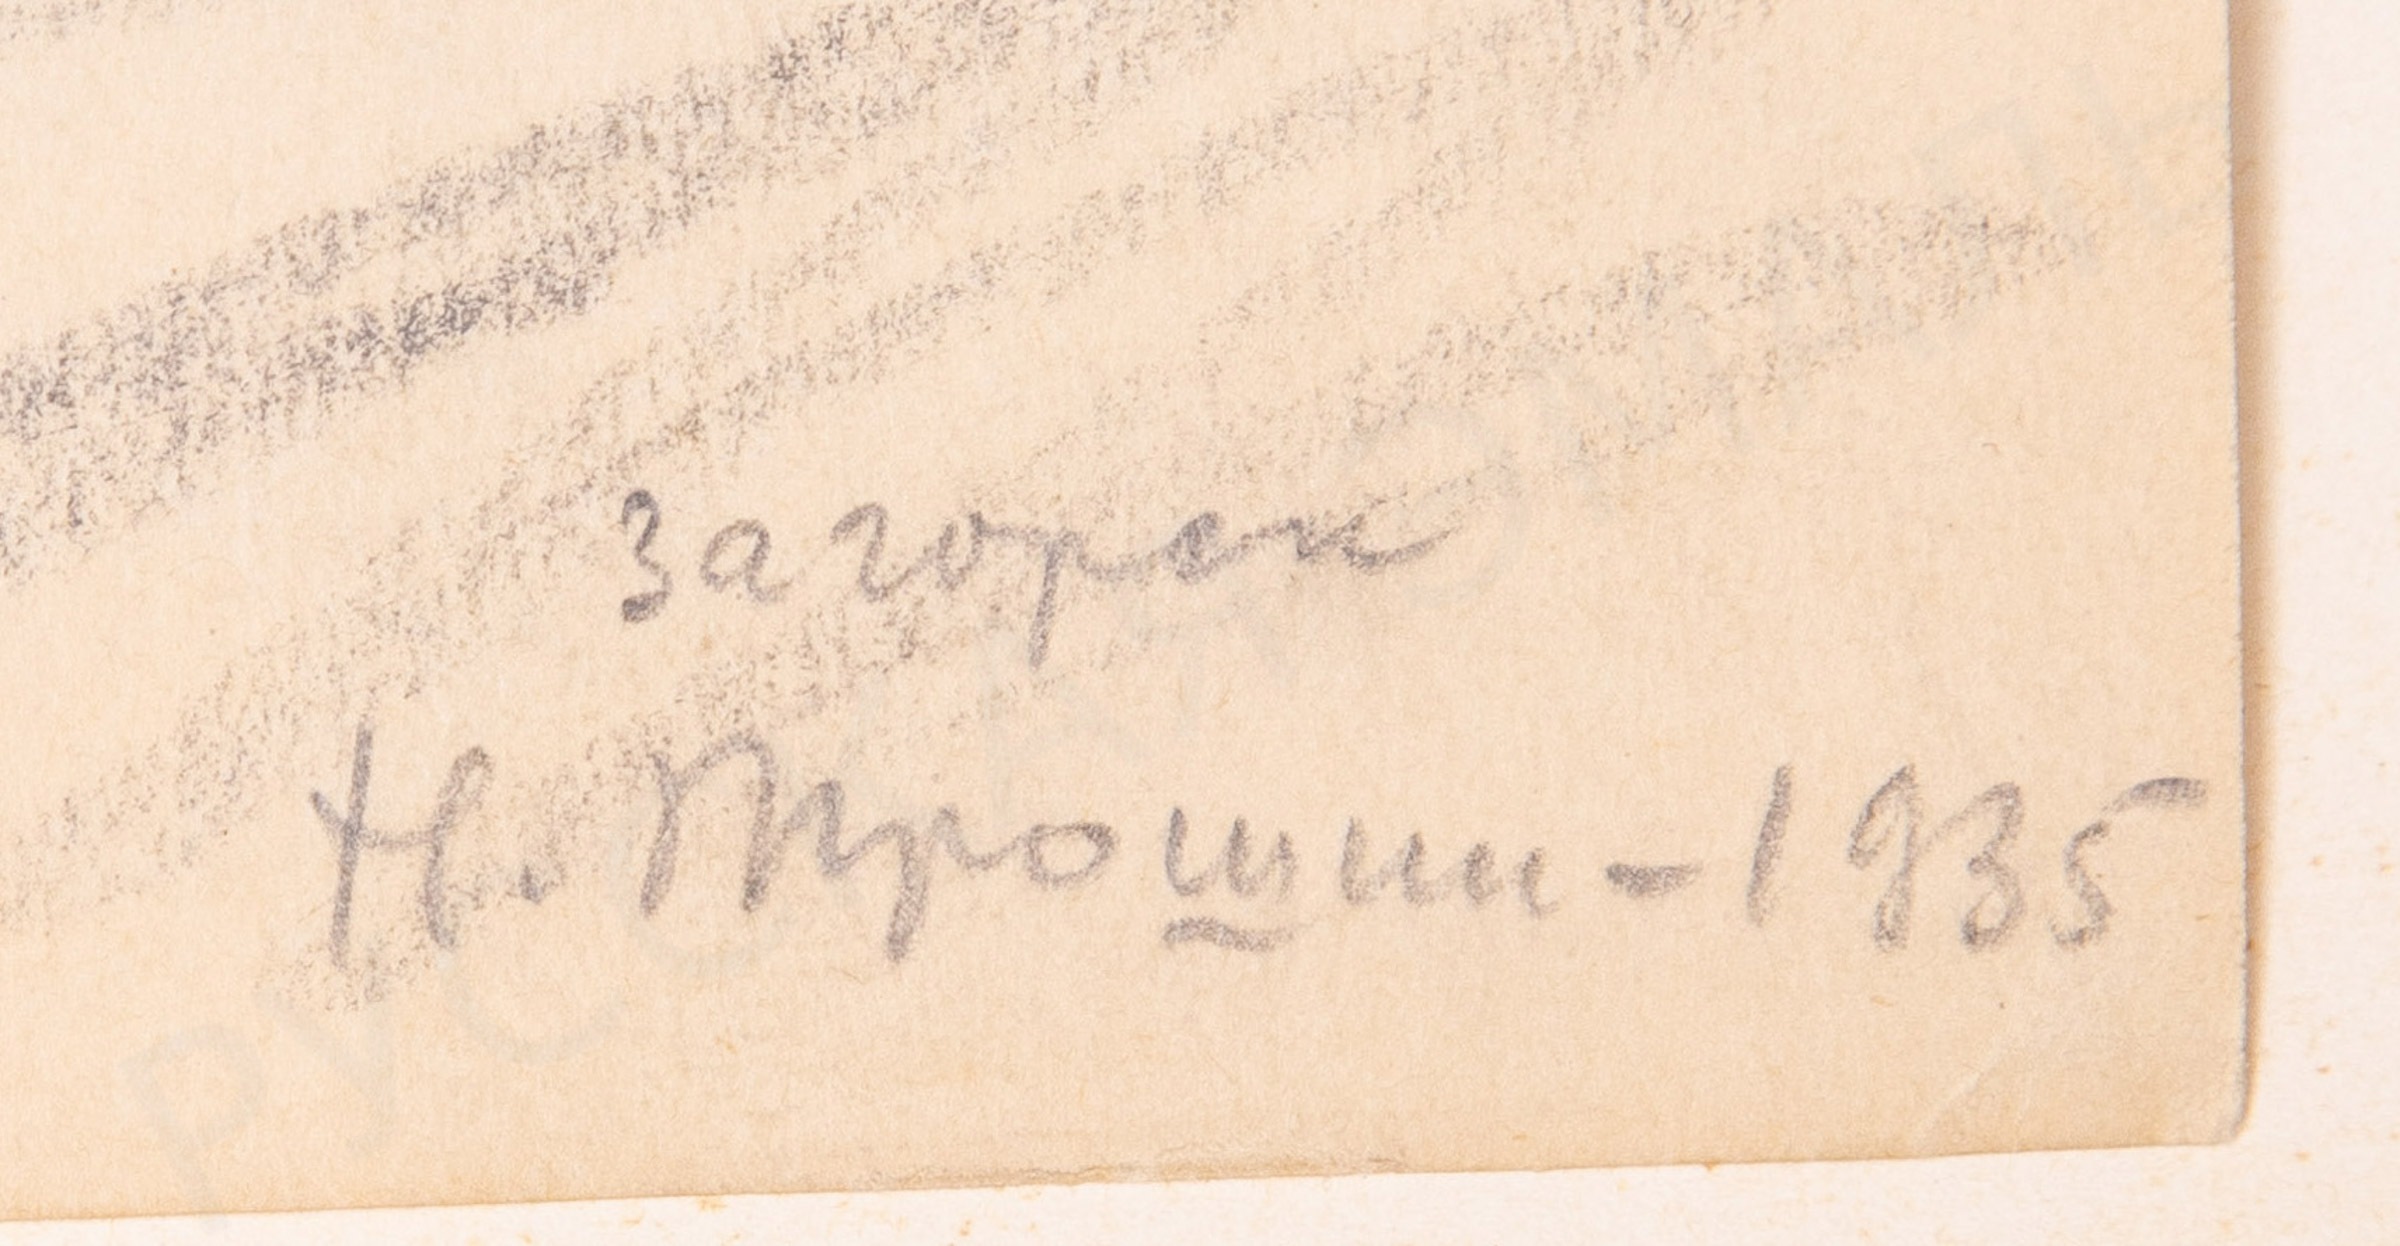 Загорск
Н. Трошин - 1935